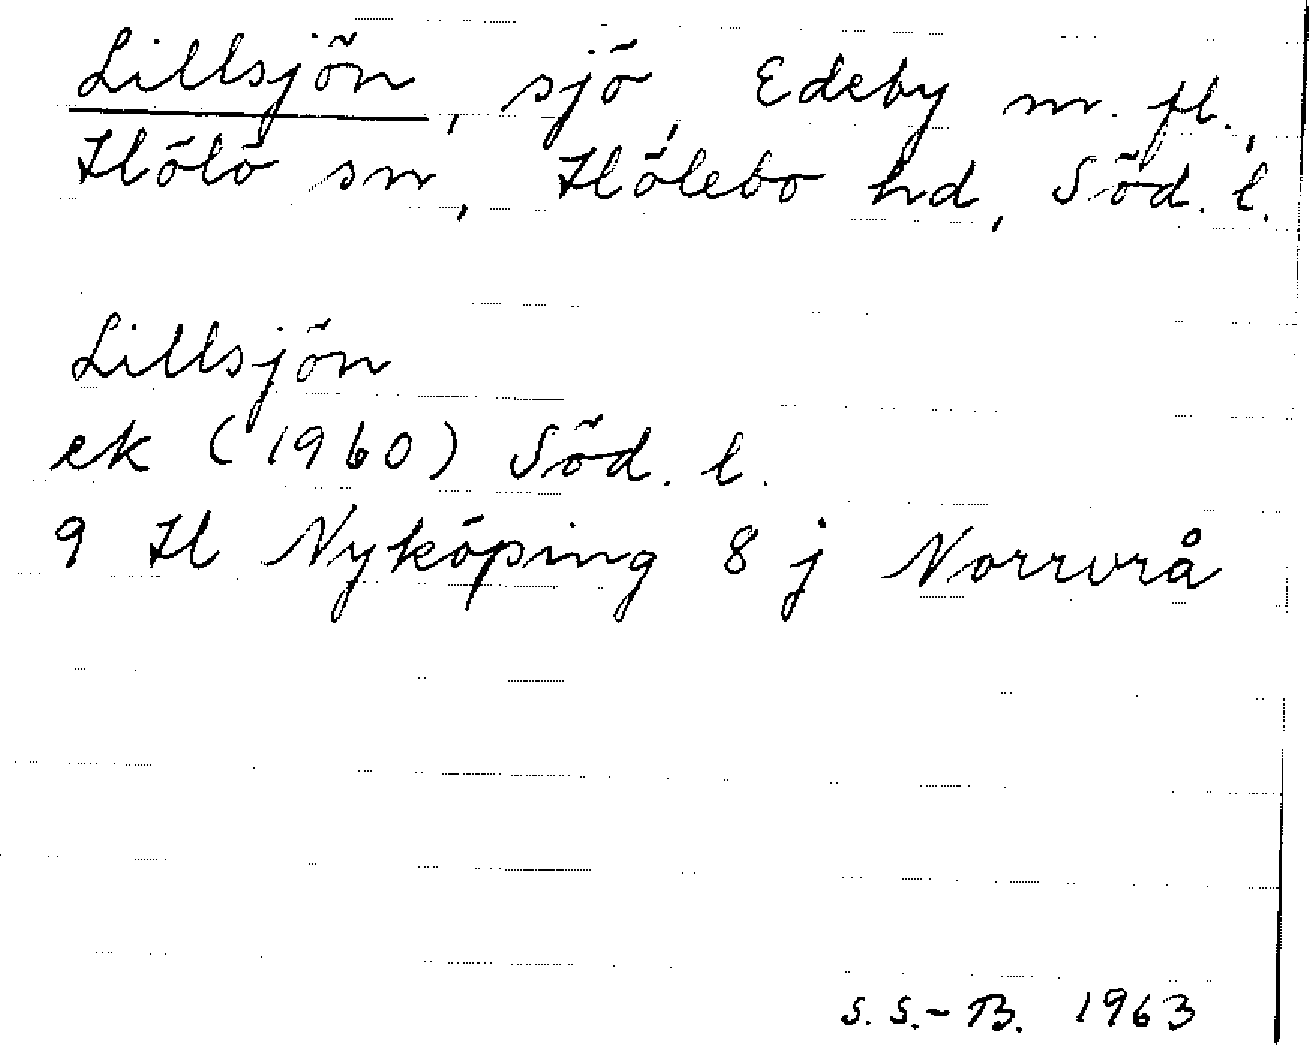 Lillsjön, sjö, Edeby m. fl.,
Hölö sn, Hölebo hd, Söd. l.
Lillsjön
ek (1960) Söd. l.
9 H Nyköping 8 j Norrvrå
S. S.-B. 1963